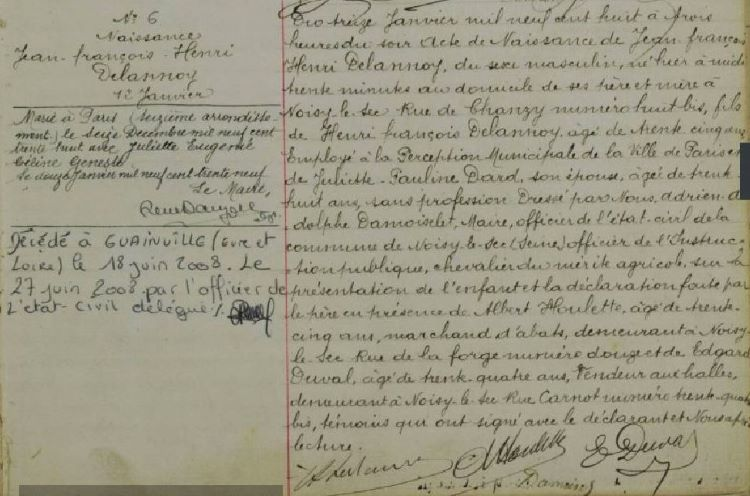 No 6
Naissance
Jean-François-Henri
Delannoy
12 Janvier
Marié à Paris (Seizième arrondisse-
ment) le seize Décembre mil neuf cent
trente huit avec Juliette Eugénie
Céline Geneste
Le douze Janvier mil neuf cent trente neuf
Le Maire,
DÉCÉDÉ à GUAINVILLE (Eure et
Loire) le 18 juin 2008. Le
27 juin 2008 par l'officier de
L'état-Civil délégué /.
treize Janvier mil neuf cent huit à trois
heures du soir Acte de Naissance de Jean-François
Henri Delannoy, du sexe masculin, né hier à midi
trente minutes au domicile de ses père et mère à
Noisy-le-Sec Rue de Chanzy numéro huit bis, fils
de Henri François Delannoy, âgé de trente cinq ans
Employé à la Perception Municipale de la Ville de Paris et
de Juliette-Pauline Dard, son épouse, âgée de trente
huit ans, sans profession Dressé par Nous, Adrien-A
dolphe Damoiselet, Maire, officier de l'état-civil de la
commune de Noisy-le-Sec (Seine) officier de l'Instruc-
tion publique, chevalier du mérite agricole, sur la
présentation de l'enfant et la déclaration faite par
le père en présence de Albert Houlette, âgé de trente-
cinq ans, marchand d'abats, demeurant à Noisy-
le-Sec Rue de la forge numéro douze et de Edgard
Duval, âgé de trente-quatre ans, Vendeur aux halles,
demeurant à Noisy-le-Sec Rue Carnot numéro trente-quatre
bis, témoins qui ont signé avec le déclarant et Nous après
lecture.
Houlette E Duval